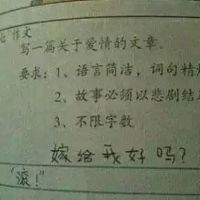 作文
写一篇关于爱情的文章。
要求:1、语言简洁,词句精
2、故事必须以悲剧结
3、不限字数
嫁给我好吗?
“滚!”